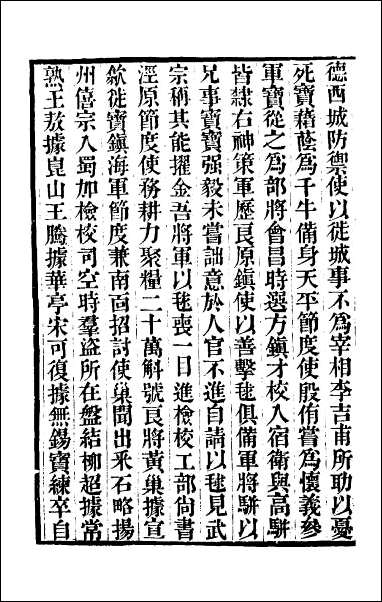 德西城防禦使以徙城事不為宰相李吉甫所助以憂
死寶藉蔭為千牛備身天平節度使殷侑嘗為懷義參
軍寶從之為部將會昌時選方鎮才校入宿衛與高駢
皆隸右神策軍歷良原鎮使以善擊毬俱備軍將駢以
兄事寶寶强毅未嘗詘意於人官不進自請以毬見武
宗稱其能擢金吾將軍以毬喪一目進檢校工部尚書
涇原節度使務耕力聚糧二十萬斛號良將黃巢據宣
歙徙寶鎮海軍節度兼南面招討使巢聞出采石略揚
州僖宗入蜀加檢校司空時羣盜所在盤結柳超據常
熟王敖據崑山王騰據華亭宋可復據無錫寶練卒自